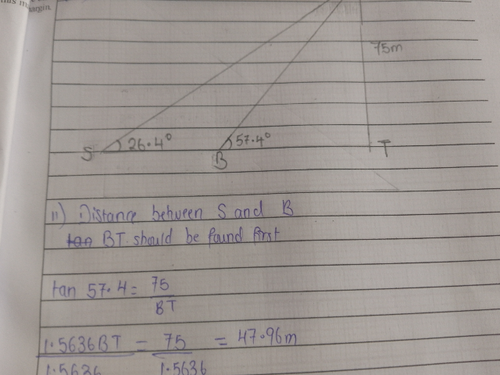 margin
75m
S 26.4° B 57.4° T
ii) Distance between S and B
BT should be found first
tan 57.4 = 75
BT
1.5636BT = 75 = 47.96m
1.5636 1.5636